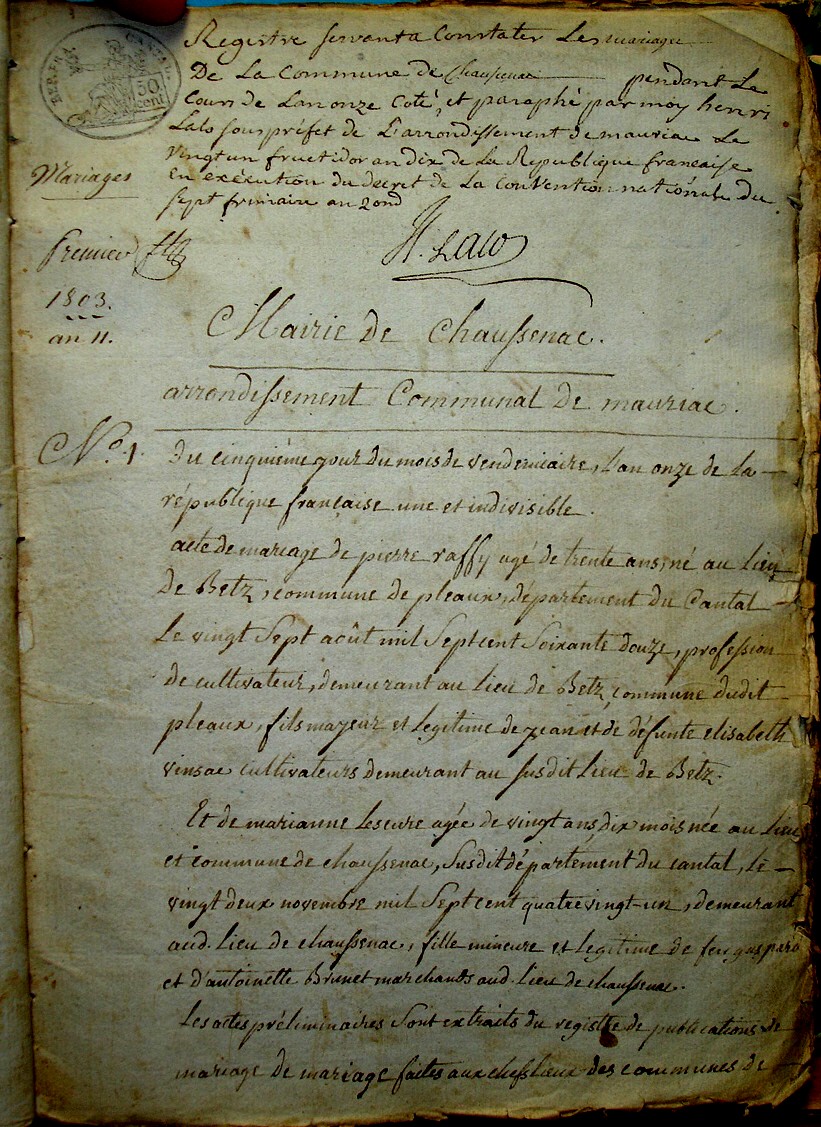 REP. FRA.
CANTAL
50
cent
Registre servant a Constater Les mariages
De La Commune de Chaussenac pendant Le
Cours de Lan onze Coté, et paraphé par moy henri
Lalo sous préfet de L'arrondissement de mauriac Le
Vingt un fructidor an dix de La République francaise
En exécution du decret de La Convention nationale du
sept frimaire an 2ond
Mariages
H. Lalo
Premier
1803.
an 11.
Mairie de Chaussenac.
arrondissement Communal de mauriac.
N° 1.
Du cinquième jour du mois de vendemiaire, L'an onze de La
république française une et indivisible.
acte de mariage de pierre raffy agé de trente ans, né au Lieu
de Betz, commune de pleaux, département du Cantal
Le vingt Sept août mil Sept cent Soixante douze, profession
de cultivateur, demeurant au Lieu de Betz, commune dudit
pleaux, fils majeur et Legitime de jean et de défunte elisabeth
vinsac cultivateurs demeurant au susdit Lieu de Betz.
Et de marianne Lescure agée de vingt ans, dix mois née au Lieu
et commune de chaussenac, Susdit département du cantal, Le
vingt deux novembre mil Sept cent quatre vingt-un, demeurant
aud. Lieu de chaussenac, fille mineure et Legitime de feu gaspard
et d'antoinette Brunet marchands aud. Lieu de chaussenac.
Les actes préliminaires Sont extraits du registre de publications de
mariage de mariage faites aux chefs Lieux des communes de